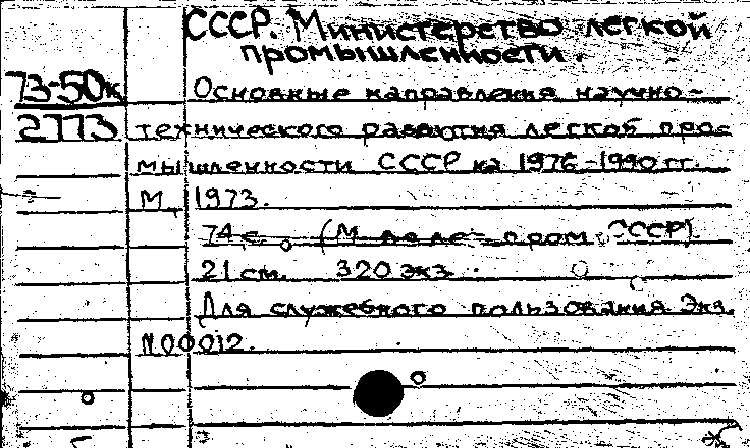 СССР. Министерство легкой
промышленности.
73-50к
2773
Основные направления научно-
технического развития легкой про-
мышленности СССР на 1976-1990 гг.
М., 1973.
74 с. (М-во лег. пром. СССР)
21 см. 320 экз.
Для служебного пользования. Экз.
N00012.